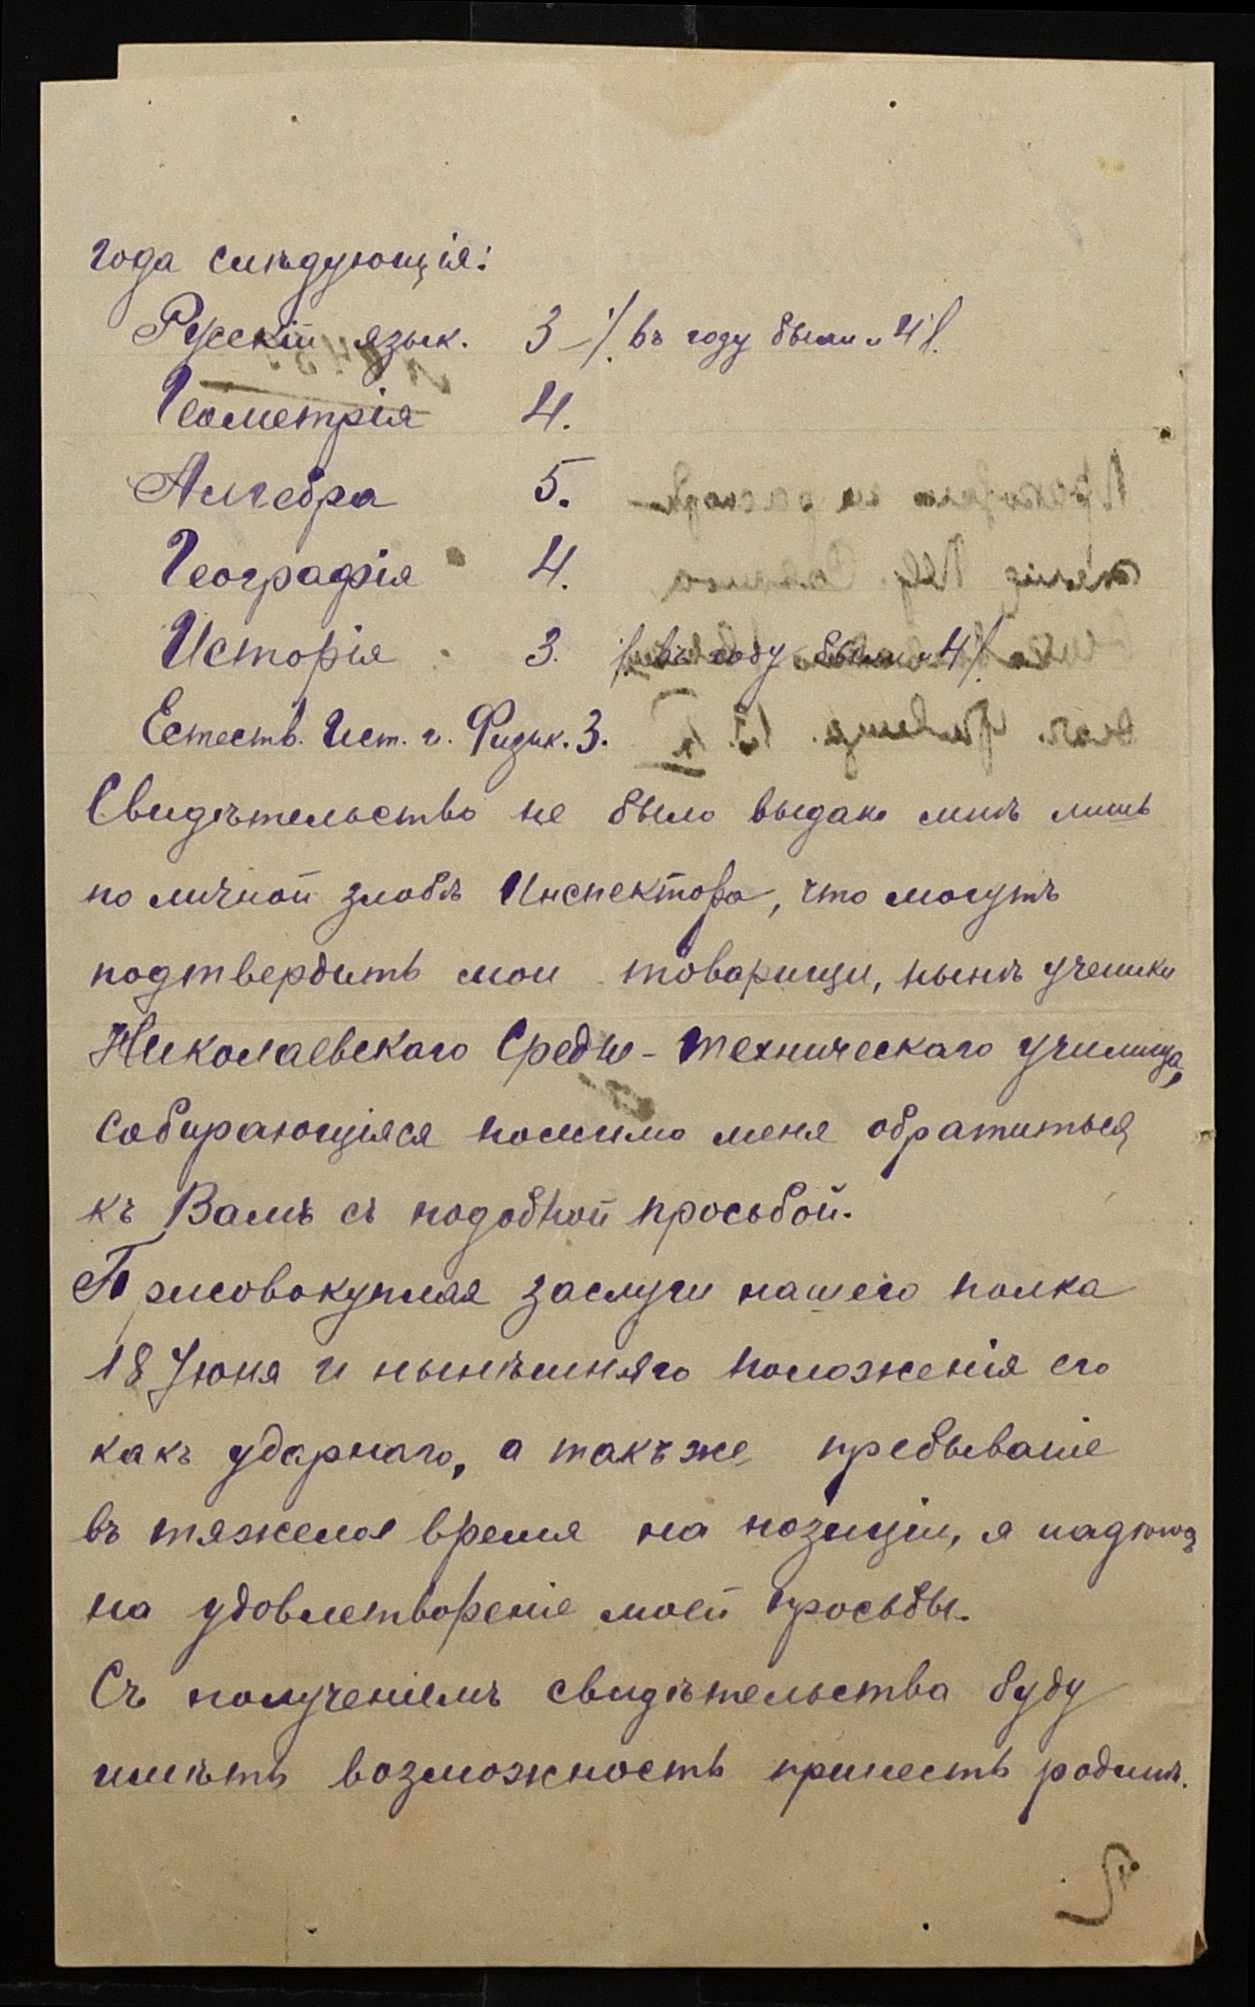 года слѣдующія:
Русскій язык. 3 - /. въ году были и 4 /.
Геометрія 4.
Алгебра 5.
Географія 4.
Исторія 3. /. въ году были и 4 /.
Естеств. Ист. и. Физик. 3.
Свидѣтельство не было выдано мнѣ лишь
по личной злобѣ Инспектора, что могутъ
подтвердить мои товарищи, нынѣ ученики
Николаевскаго Средне-техническаго училища,
собирающіяся помимо меня обратиться
къ Вамъ съ подобной просьбой.
Присовокупляя заслуги нашего полка
18 Іюня и нынѣшняго положенія его
какъ ударнаго, а такъ же пребываніе
въ тяжелое время на позиціи, я надѣюсь
на удовлетвореніе моей просьбы.
Съ полученіемъ свидѣтельства буду
имѣть возможность принесть родинѣ.